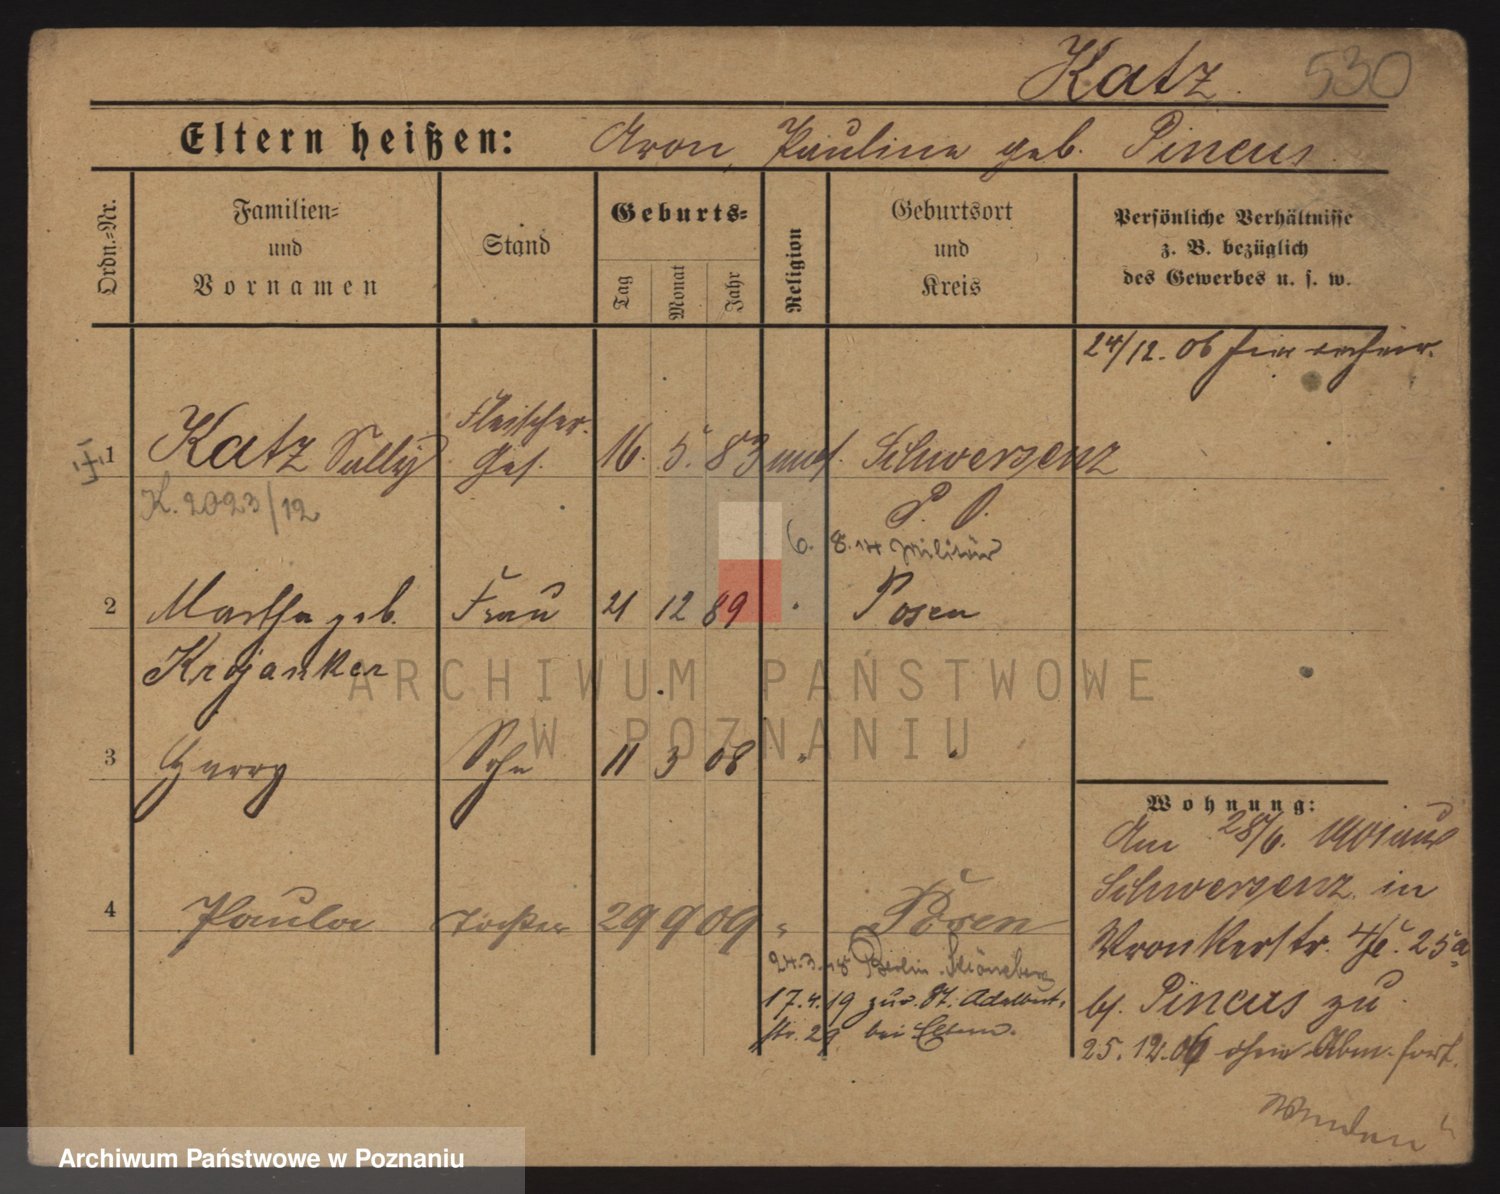 Katz. 530
Eltern heißen: Aron, Pauline geb. Pincus
Ordn.=Nr.
Familien=
und
Vornamen
Stand
Geburts=
Tag
Monat
Jahr
Religion
Geburtsort
und
Kreis
Persönliche Verhältnisse
z. B. bezüglich
des Gewerbes u. s. w.
24/12. 06 hier
1 Katz Sally Fleischer-
Ges. 16. 5. 83 mos. Schwersenz
K. 2023/12
P. O.
6. 8. 14 Militär
2 Martha geb. Frau 21 12 89 " Posen
Krojanker
3 Harry Sohn 11 3 08 " "
4 Paula Tochter 29 9 09 " Posen
24.3.18 Berlin-Schöneberg
17.4.19 zur. St. Adalbert-
str. 29 bei Eltern.
Wohnung:
Am 28/6. 1901 aus
Schwersenz in
Wronkerstr. 4/5. 25a
bei Pincus zu
25. 12. 06 ohne Abm. fort.
Wenden
ARCHIWUM PAŃSTWOWE
W POZNANIU
Archiwum Państwowe w Poznaniu